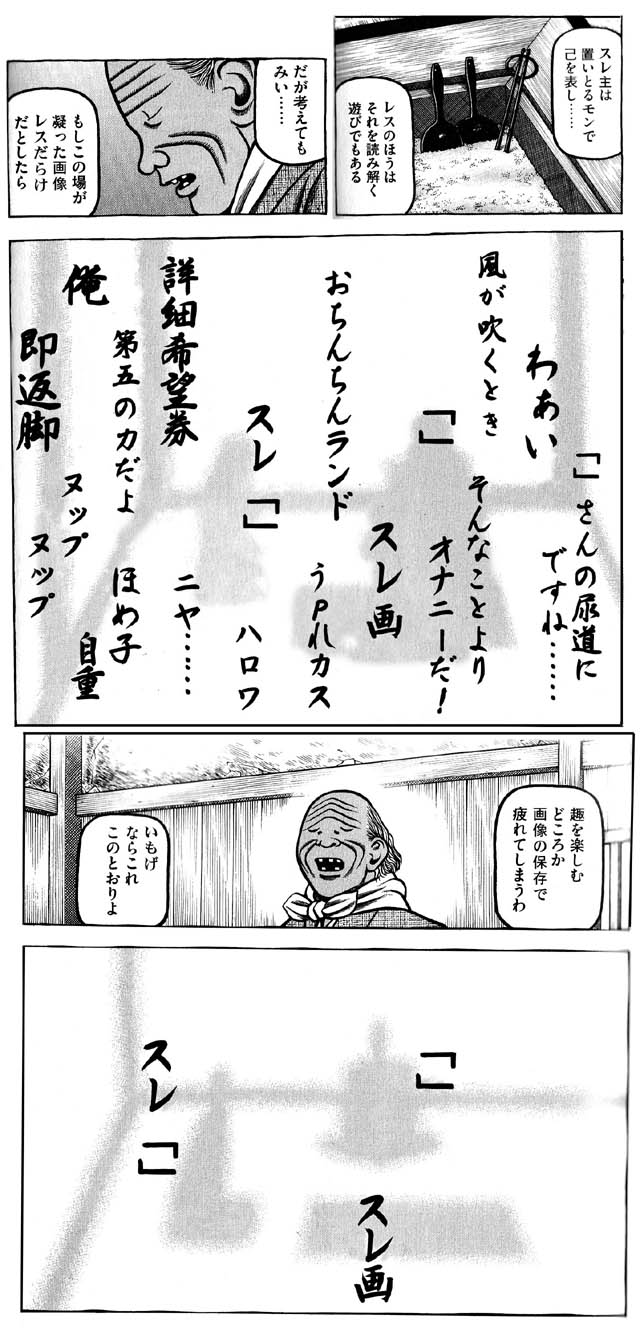 スレ主は
置いとるモンで
己を表し……
レスのほうは
それを読み解く
遊びでもある
だが考えても
みい……
もしこの場が
凝った画像
レスだらけ
だとしたら
「」さんの尿道に
ですね……
わあい
風が吹くとき
そんなことより
オナニーだ！
「」
スレ画
おちんちんランド
うpれカス
スレ「」
ハロワ
詳細希望券
ニヤ……
第五の力だよ
ほめ子
俺
自重
ヌップ
ヌップ
即返脚
趣を楽しむ
どころか
画像の保存で
疲れてしまうわ
いもげ
ならこれ
このとおりよ
「」
スレ画
スレ「」